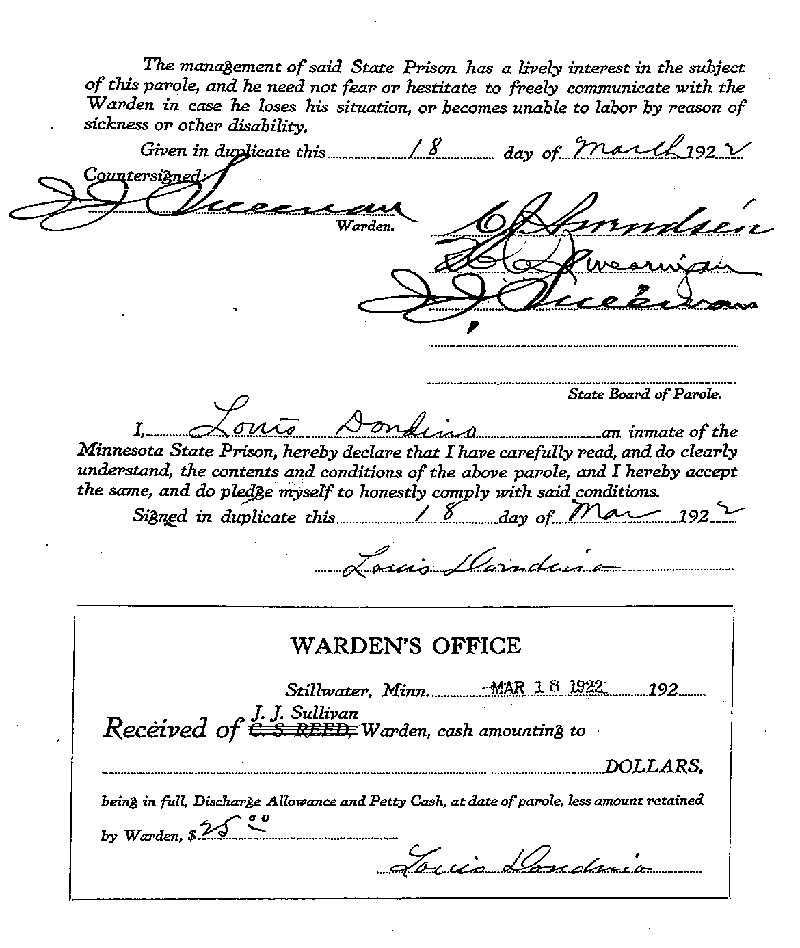 The management of said State Prison has a lively interest in the subject
of this parole, and he need not fear or hestitate to freely communicate with the
Warden in case he loses his situation, or becomes unable to labor by reason of
sickness or other disability.
Given in duplicate this 18 day of March 1922
Countersigned:
J J Sullivan
Warden.
C J Swendsen
J J Sullivan
State Board of Parole.
I, Louis Dondino an inmate of the
Minnesota State Prison, hereby declare that I have carefully read, and do clearly
understand, the contents and conditions of the above parole, and I hereby accept
the same, and do pledge myself to honestly comply with said conditions.
Signed in duplicate this 18 day of Mar 1922
Louis Dondino
WARDEN'S OFFICE
Stillwater, Minn. MAR 18 1922 192
J. J. Sullivan
Received of C. S. REED, Warden, cash amounting to
DOLLARS,
being in full, Discharge Allowance and Petty Cash, at date of parole, less amount retained
by Warden, $ 25 00
Louis Dondino